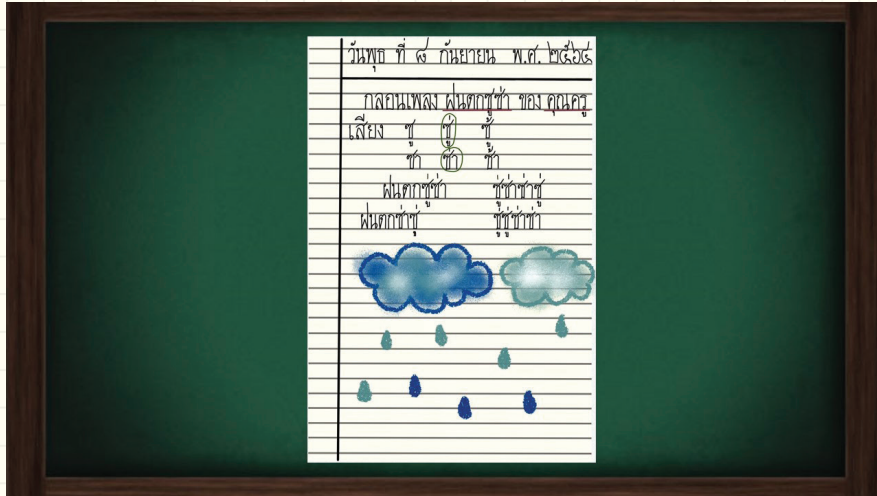 วันพุธ ที่ ๘ กันยายน พ.ศ. ๒๕๖๔
กลอนเพลง ฝนตกซู่ซ่า ของ คุณครู
เสียง ซู ซู่ ซู้
ซา ซ่า ซ้า
ฝนตกซู่ซ่า ซู่ซ่าซ่าซู่
ฝนตกซ่าซู่ ซู่ซู่ซ่าซ่า